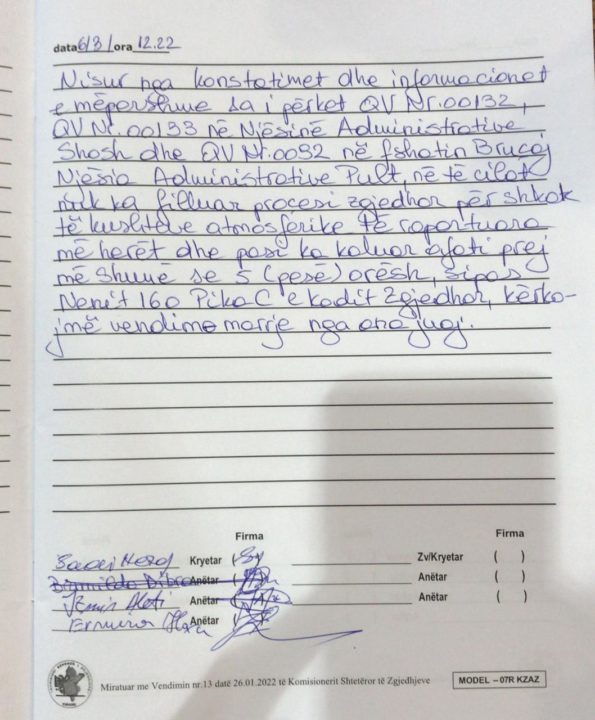 data 6/3 / ora 12.22
Nisur nga konstatimet dhe informacionet
e mëparshme sa i përket QV Nr.00132,
QV Nr.00133 në Njësinë Administrative
Shosh dhe QV Nr.0092 në fshatin Brucaj
Njësia Administrative Pult, në të cilat
nuk ka filluar procesi zgjedhor për shkak
të kushteve atmosferike të raportuara
më herët dhe pasi ka kaluar afati prej
më shumë se 5 (pesë) orësh, sipas
Nenit 160 Pika C e kodit Zgjedhor, kërko-
jmë vendimmarrje nga ana juaj.
Firma Firma
Kryetar ( ) Zv/Kryetar ( )
Anëtar ( ) Anëtar ( )
Anëtar ( ) Anëtar ( )
Anëtar
Miratuar me Vendimin nr.13 datë 26.01.2022 të Komisionerit Shtetëror të Zgjedhjeve
MODEL – 07R KZAZ